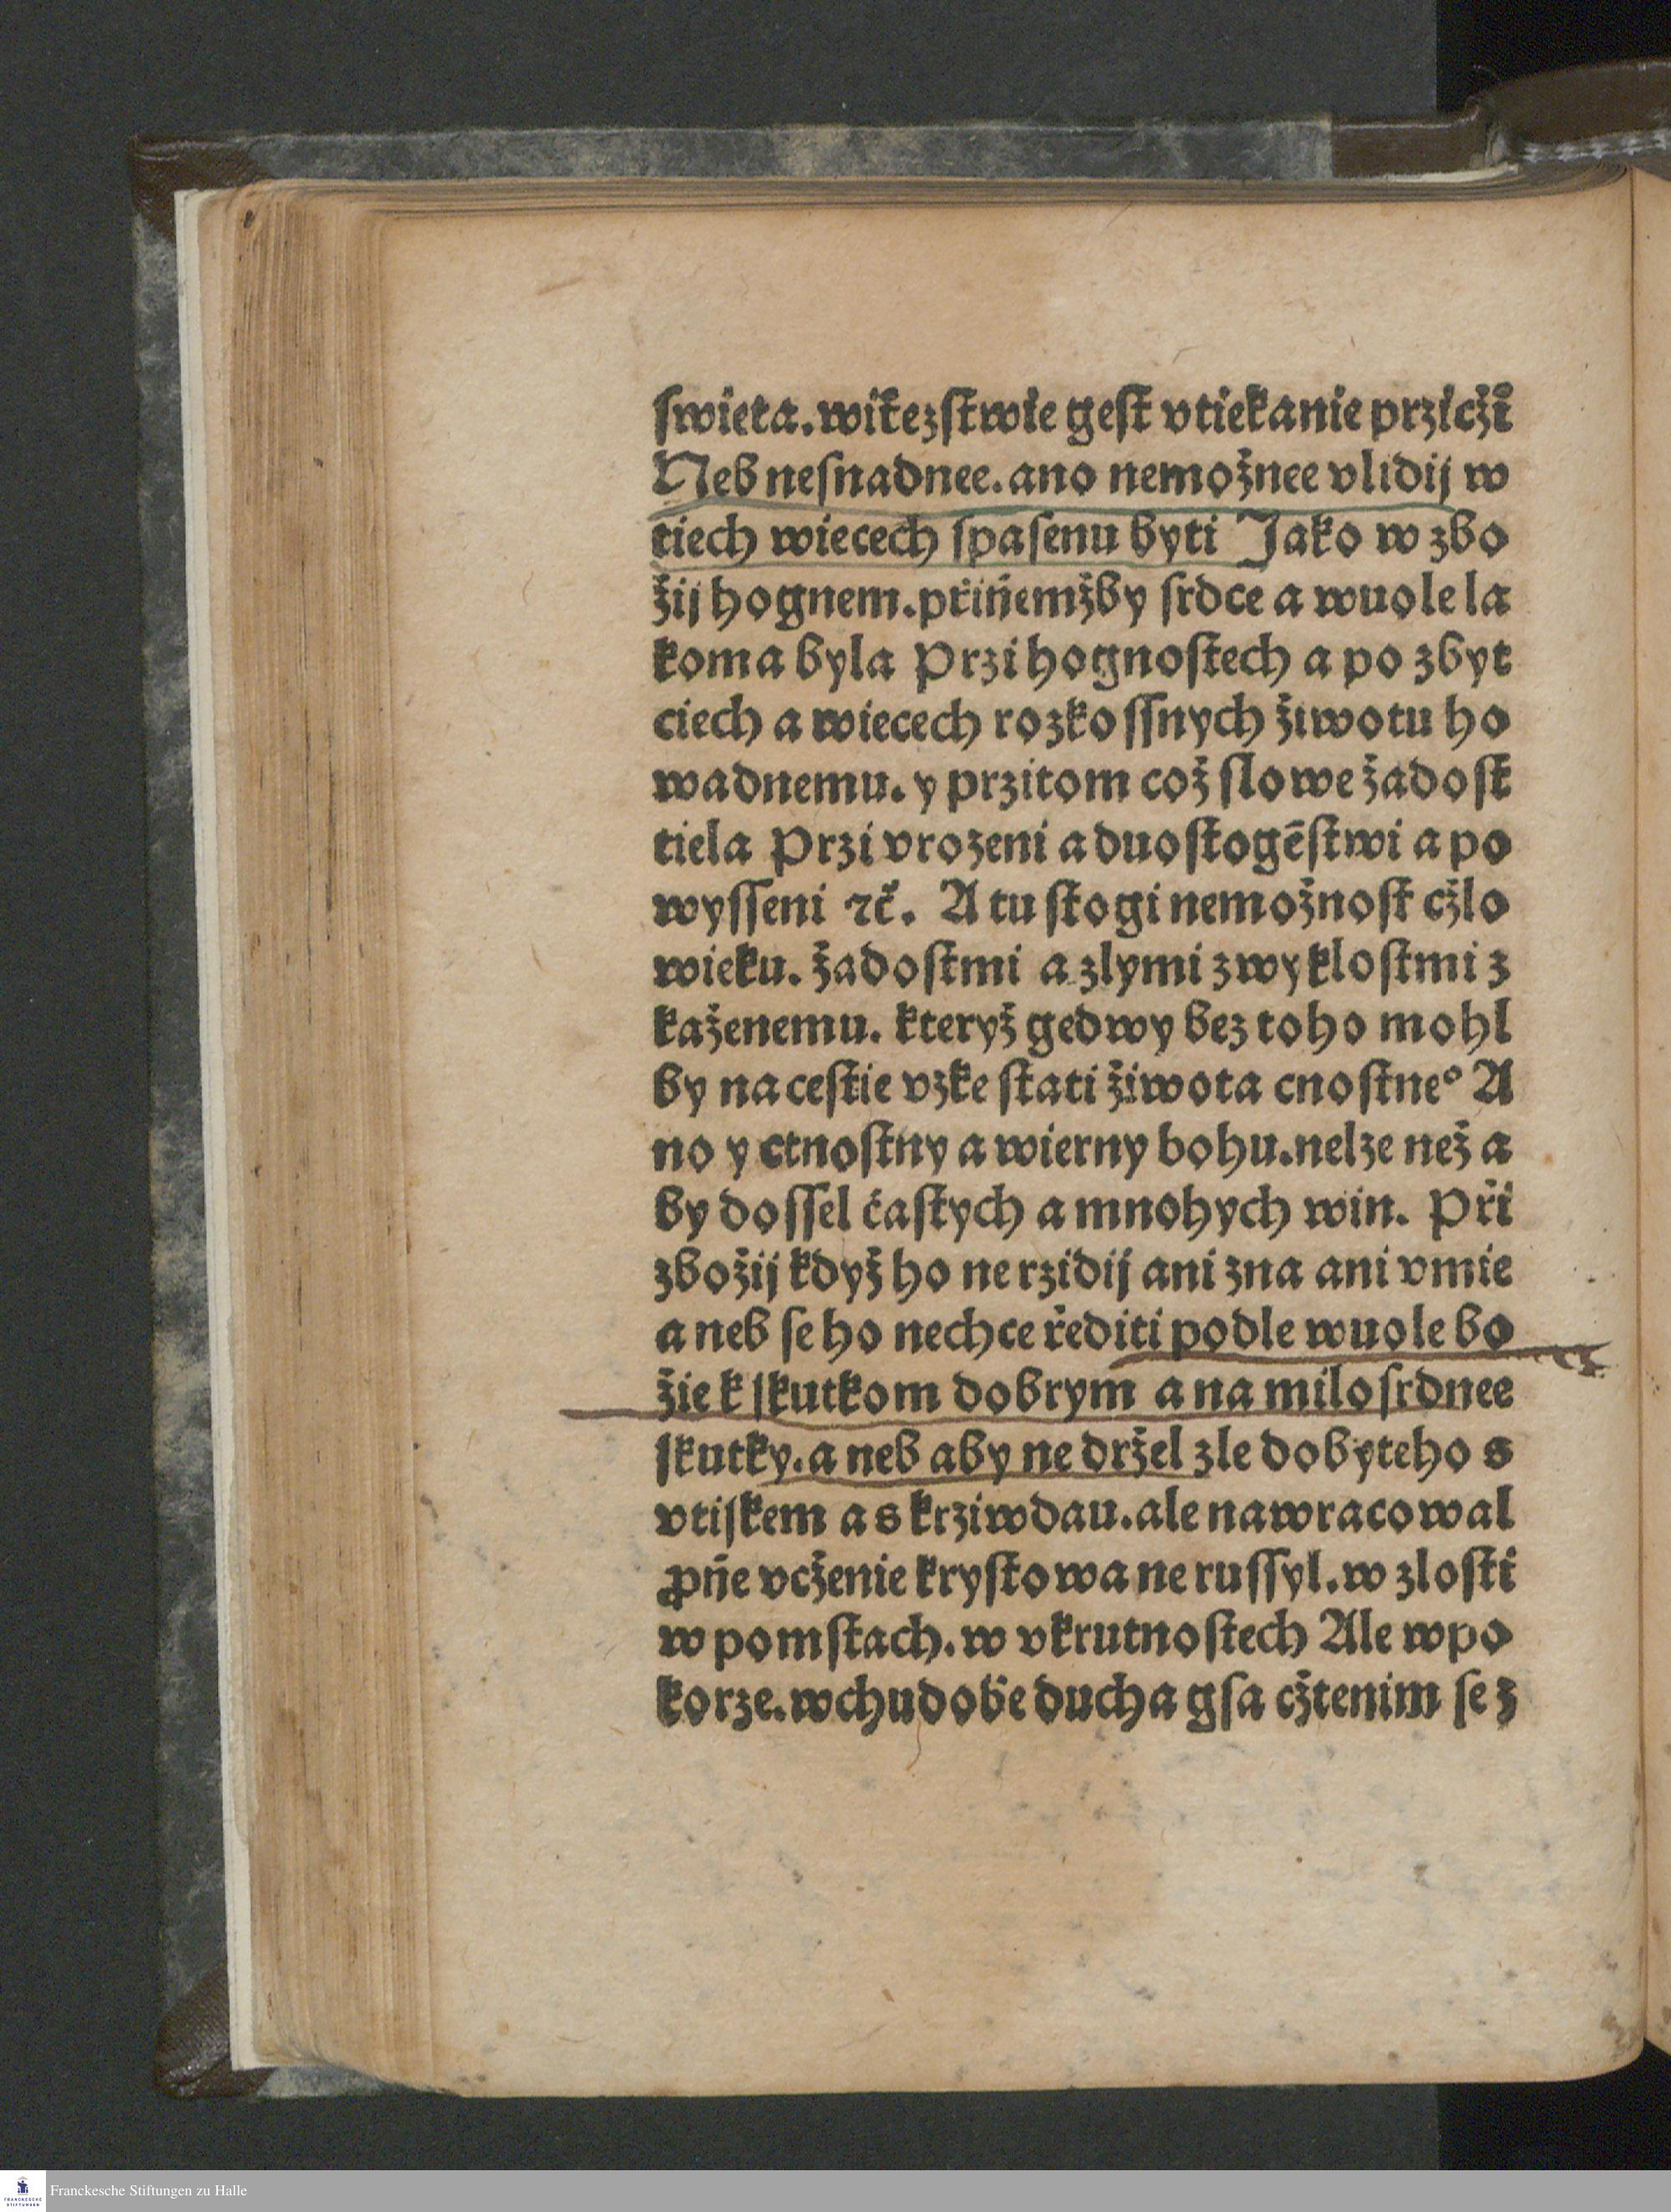 ſwieta. witezſtwie geſt vtiekanie przicží
Neb neſnadnee. ano nemožnee vlidij w
tiech wiecech ſpaſenu byti Jako w zbo
žij hognem. přiňemžby ſrdce a wuole la
koma byla Przi hognoſtech a po zbyt
ciech a wiecech rozkoſſnych žiwotu ho
wadnemu. y przitom což ſlowe žadoſt
tiela Przi vrozeni a duoſtogēſtwi a po
wyſſeni ⁊č. A tu ſtogi nemožnoſt cžlo
wieku. žadoſtmi a zlymi zwykloſtmi z
kaženemu. kteryž gedwy bez toho mohl
by na ceſtie vzke ſtati žiwota cnoſtne° A
no y ctnoſtny a wierny bohu. nelze než a
by doſſel čaſtych a mnohych win. Při
zbožij když ho nerzidij ani zna ani vmie
a neb ſe ho nechce řediti podle wuole bo
žie k ſkutkom dobrym a na miloſrdnee
ſkutky. a neb aby ne držel zle dobyteho s
vtiſkem a s krziwdau. ale nawracowal
ꝓňe vcženie kryſtowa ne ruſſyl. w zloſti
w pomſtach. w vkrutnoſtech Ale w po
korze. w chudobě ducha gſa cžtenim ſe z
Franckesche Stiftungen zu Halle